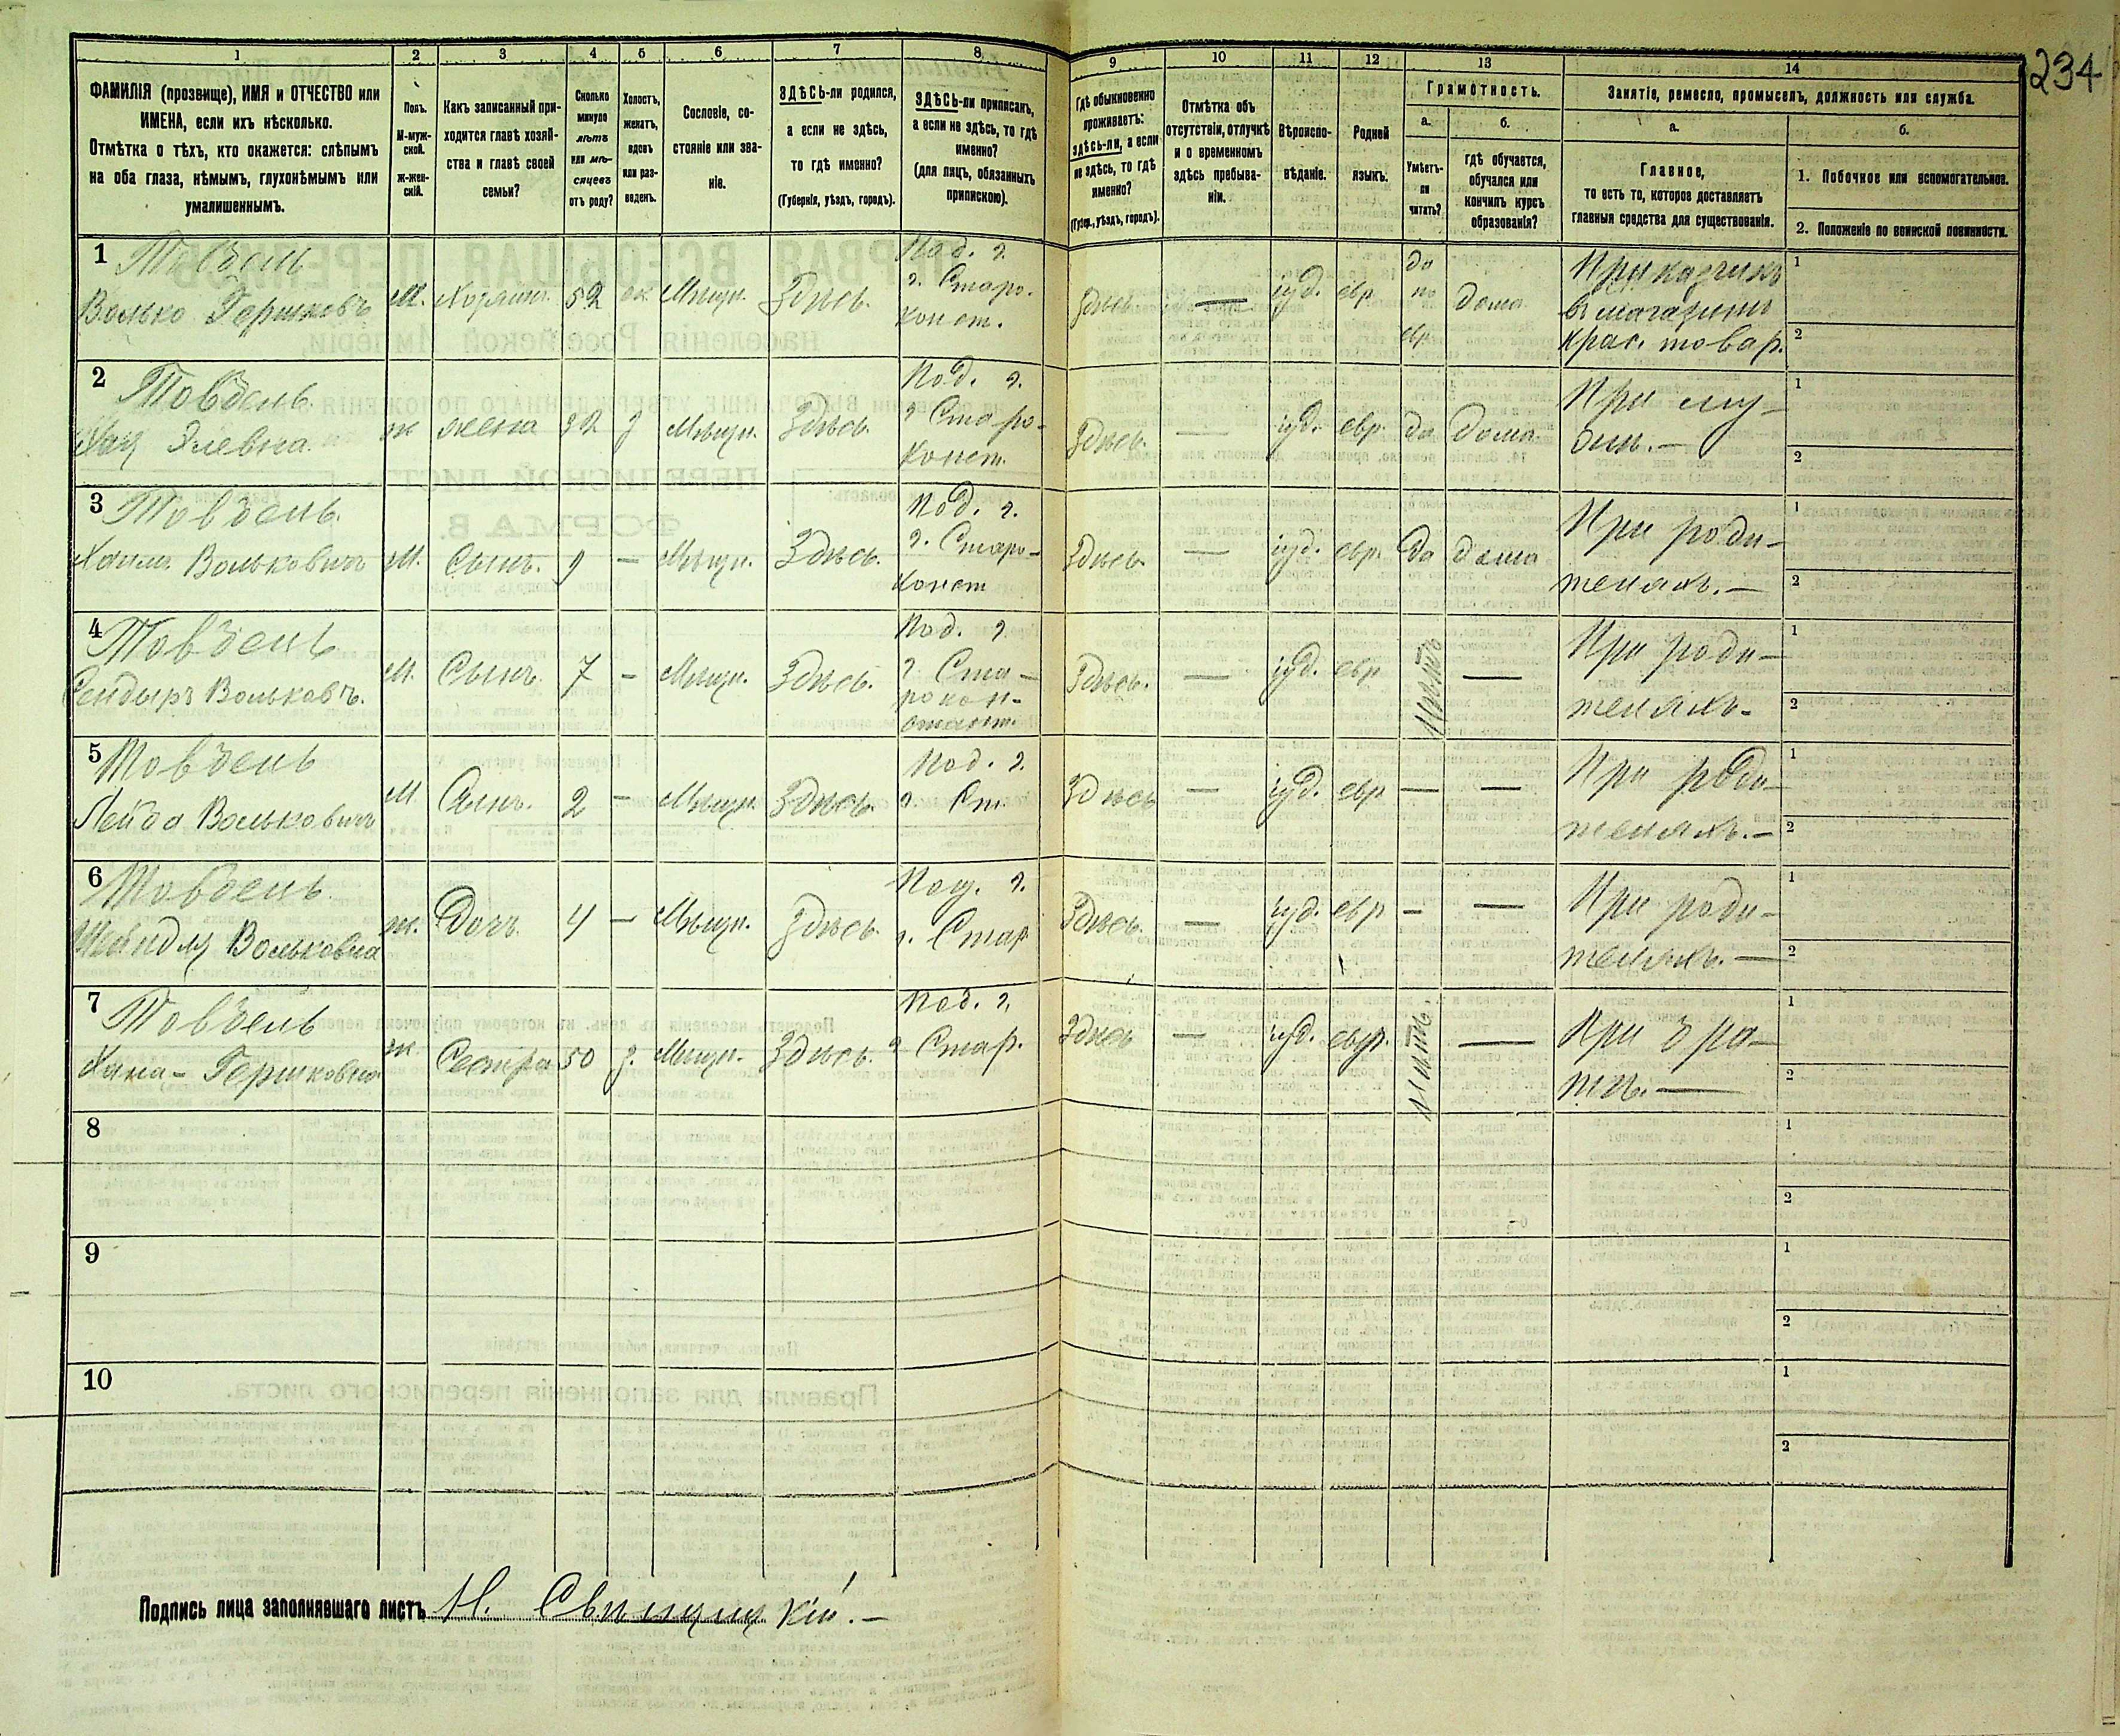 234
1 2 3 4 5 6 7 8 9 10 11 12 13 14
ФАМИЛІЯ (прозвище), ИМЯ и ОТЧЕСТВО или
ИМЕНА, если ихъ нѣсколько.
Отмѣтка о тѣхъ, кто окажется: слѣпымъ
на оба глаза, нѣмымъ, глухонѣмымъ или
умалишеннымъ.
Полъ.
М-муж-
ской.
Ж-жен-
скій.
Какъ записанный при-
ходится главѣ хозяй-
ства и главѣ своей
семьи?
Сколько
минуло
лѣтъ
или мѣ-
сяцевъ
отъ роду?
Холостъ,
женатъ,
вдовъ
или раз-
веденъ.
Сословіе, со-
стояніе или зва-
ніе.
ЗДѢСЬ-ли родился,
а если не здѣсь,
то гдѣ именно?
(Губернія, уѣздъ, городъ).
ЗДѢСЬ-ли приписанъ,
а если не здѣсь, то гдѣ
именно?
(для лицъ, обязанныхъ
припискою).
Гдѣ обыкновенно
проживаетъ:
здѣсь-ли, а если
не здѣсь, то гдѣ
именно?
(Губер., уѣздъ, городъ).
Отмѣтка объ
отсутствіи, отлучкѣ
и о временномъ
здѣсь пребыва-
ніи.
Вѣроиспо-
вѣданіе.
Родной
языкъ.
Грамотность.
а.
Умѣетъ-
ли
читать?
б.
гдѣ обучается,
обучался или
кончилъ курсъ
образованія?
Занятіе, ремесло, промыселъ, должность или служба.
а.
Главное,
то есть то, которое доставляетъ
главныя средства для существованія.
б.
1. Побочное или вспомогательное.
2. Положеніе по воинской повинности.
1 Товбень
Волько Гершковъ М. Хозяин. 52 Мѣщн. Здѣсь. Под. г. г. Старо- конст. Здѣсь — іуд. евр. да по евр. дома Приказчикъ в магазинѣ крас. товар. 1 2
2 Товбень
Элевна ж жена Мѣщн. Здѣсь. Под. г. г Старо- конст. Здѣсь — іуд. евр. да дома При му- жѣ.— 1 2
3 Товбень.
Хаимъ Вольковичъ М. Сынъ. 9 — Мѣщн. Здѣсь. Под. г. г. Старо- конст Здѣсь — іуд. евр. да дома При роди- теляхъ.— 1 2
4 Товбень
Сендыръ Вольковъ. М. Сынъ 7 — Мѣщн. Здѣсь. Под. г г Ста- рокон- стант. Здѣсь. — іуд. евр — При роди- теляхъ- 1 2
5 Товбень
Лейба Вольковичъ М Сынъ. 2 — Мѣщн. Здѣсь. Под. г. г. Ст Здѣсь — іуд. евр — — При роди- теляхъ.— 1 2
6 Товбень.
Вольковна ж. Дочь 4 — Мѣщн. Здѣсь Под. г. г. Стар Здѣсь. — іуд. евр — — При роди- теляхъ.— 1 2
7 Товбень
Хана- Гершковна ж Сестра 50 Мѣщн. Здѣсь. Под. г. г Стар. Здѣсь — іуд. евр. — При бра- тѣ.— 1 2
8 1 2
9 1 2
10 1 2
Подпись лица заполнявшаго листъ